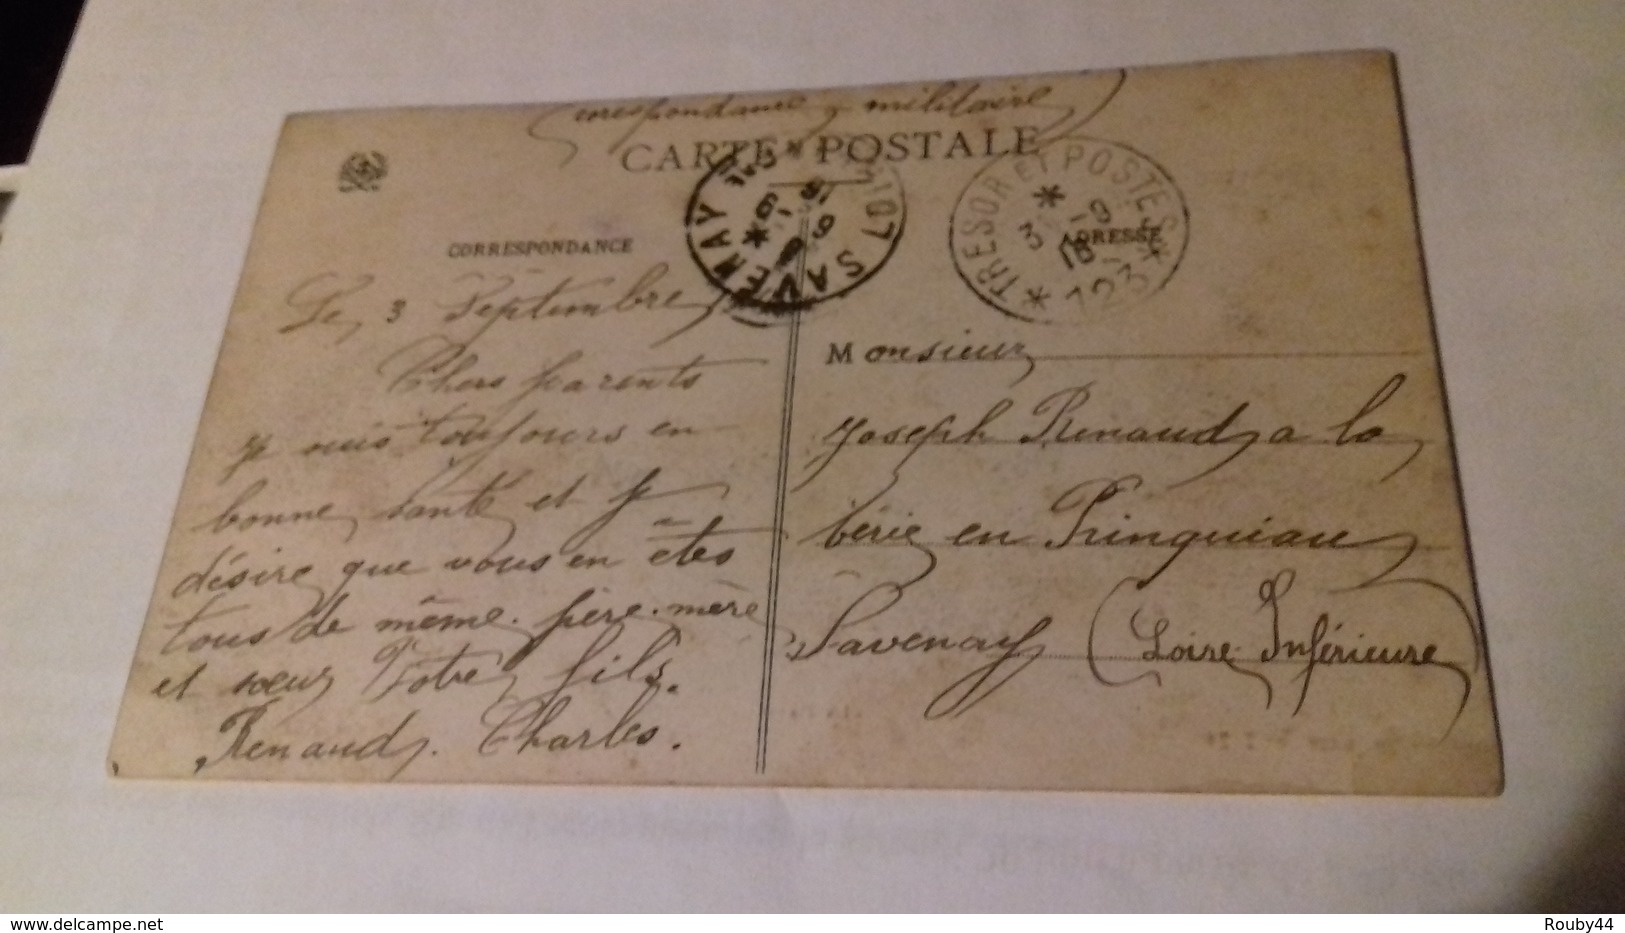 Correspondance militaire
CARTE POSTALE
CORRESPONDANCE
ADRESSE
SAVENAY
LOIRE
TRESOR ET POSTES
3 9
18
* 123 *
Le 3 Septembre
Chers parents
Je suis toujours en
bonne santé et je
désire que vous en êtes
tous de même. père. mère
et sœur Votre fils.
Renaud. Charles.
Monsieur
Joseph Renaud a la
bérie en Prinquiau
Savenay (Loire Inférieure)
delcampe.net
Rouby44